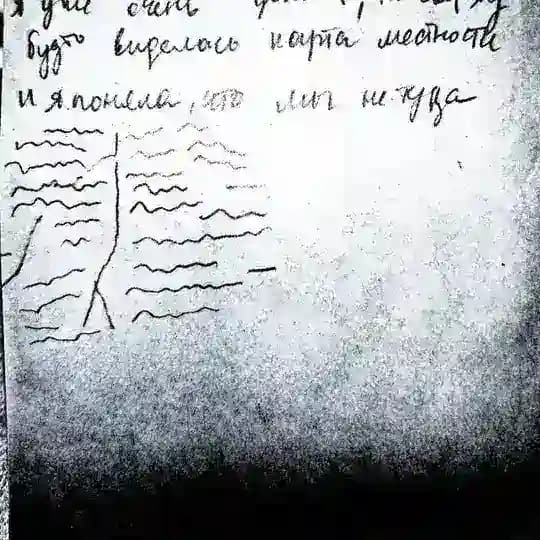 я уже очень
будто виделась карта местности
и я поняла, что мы не туда